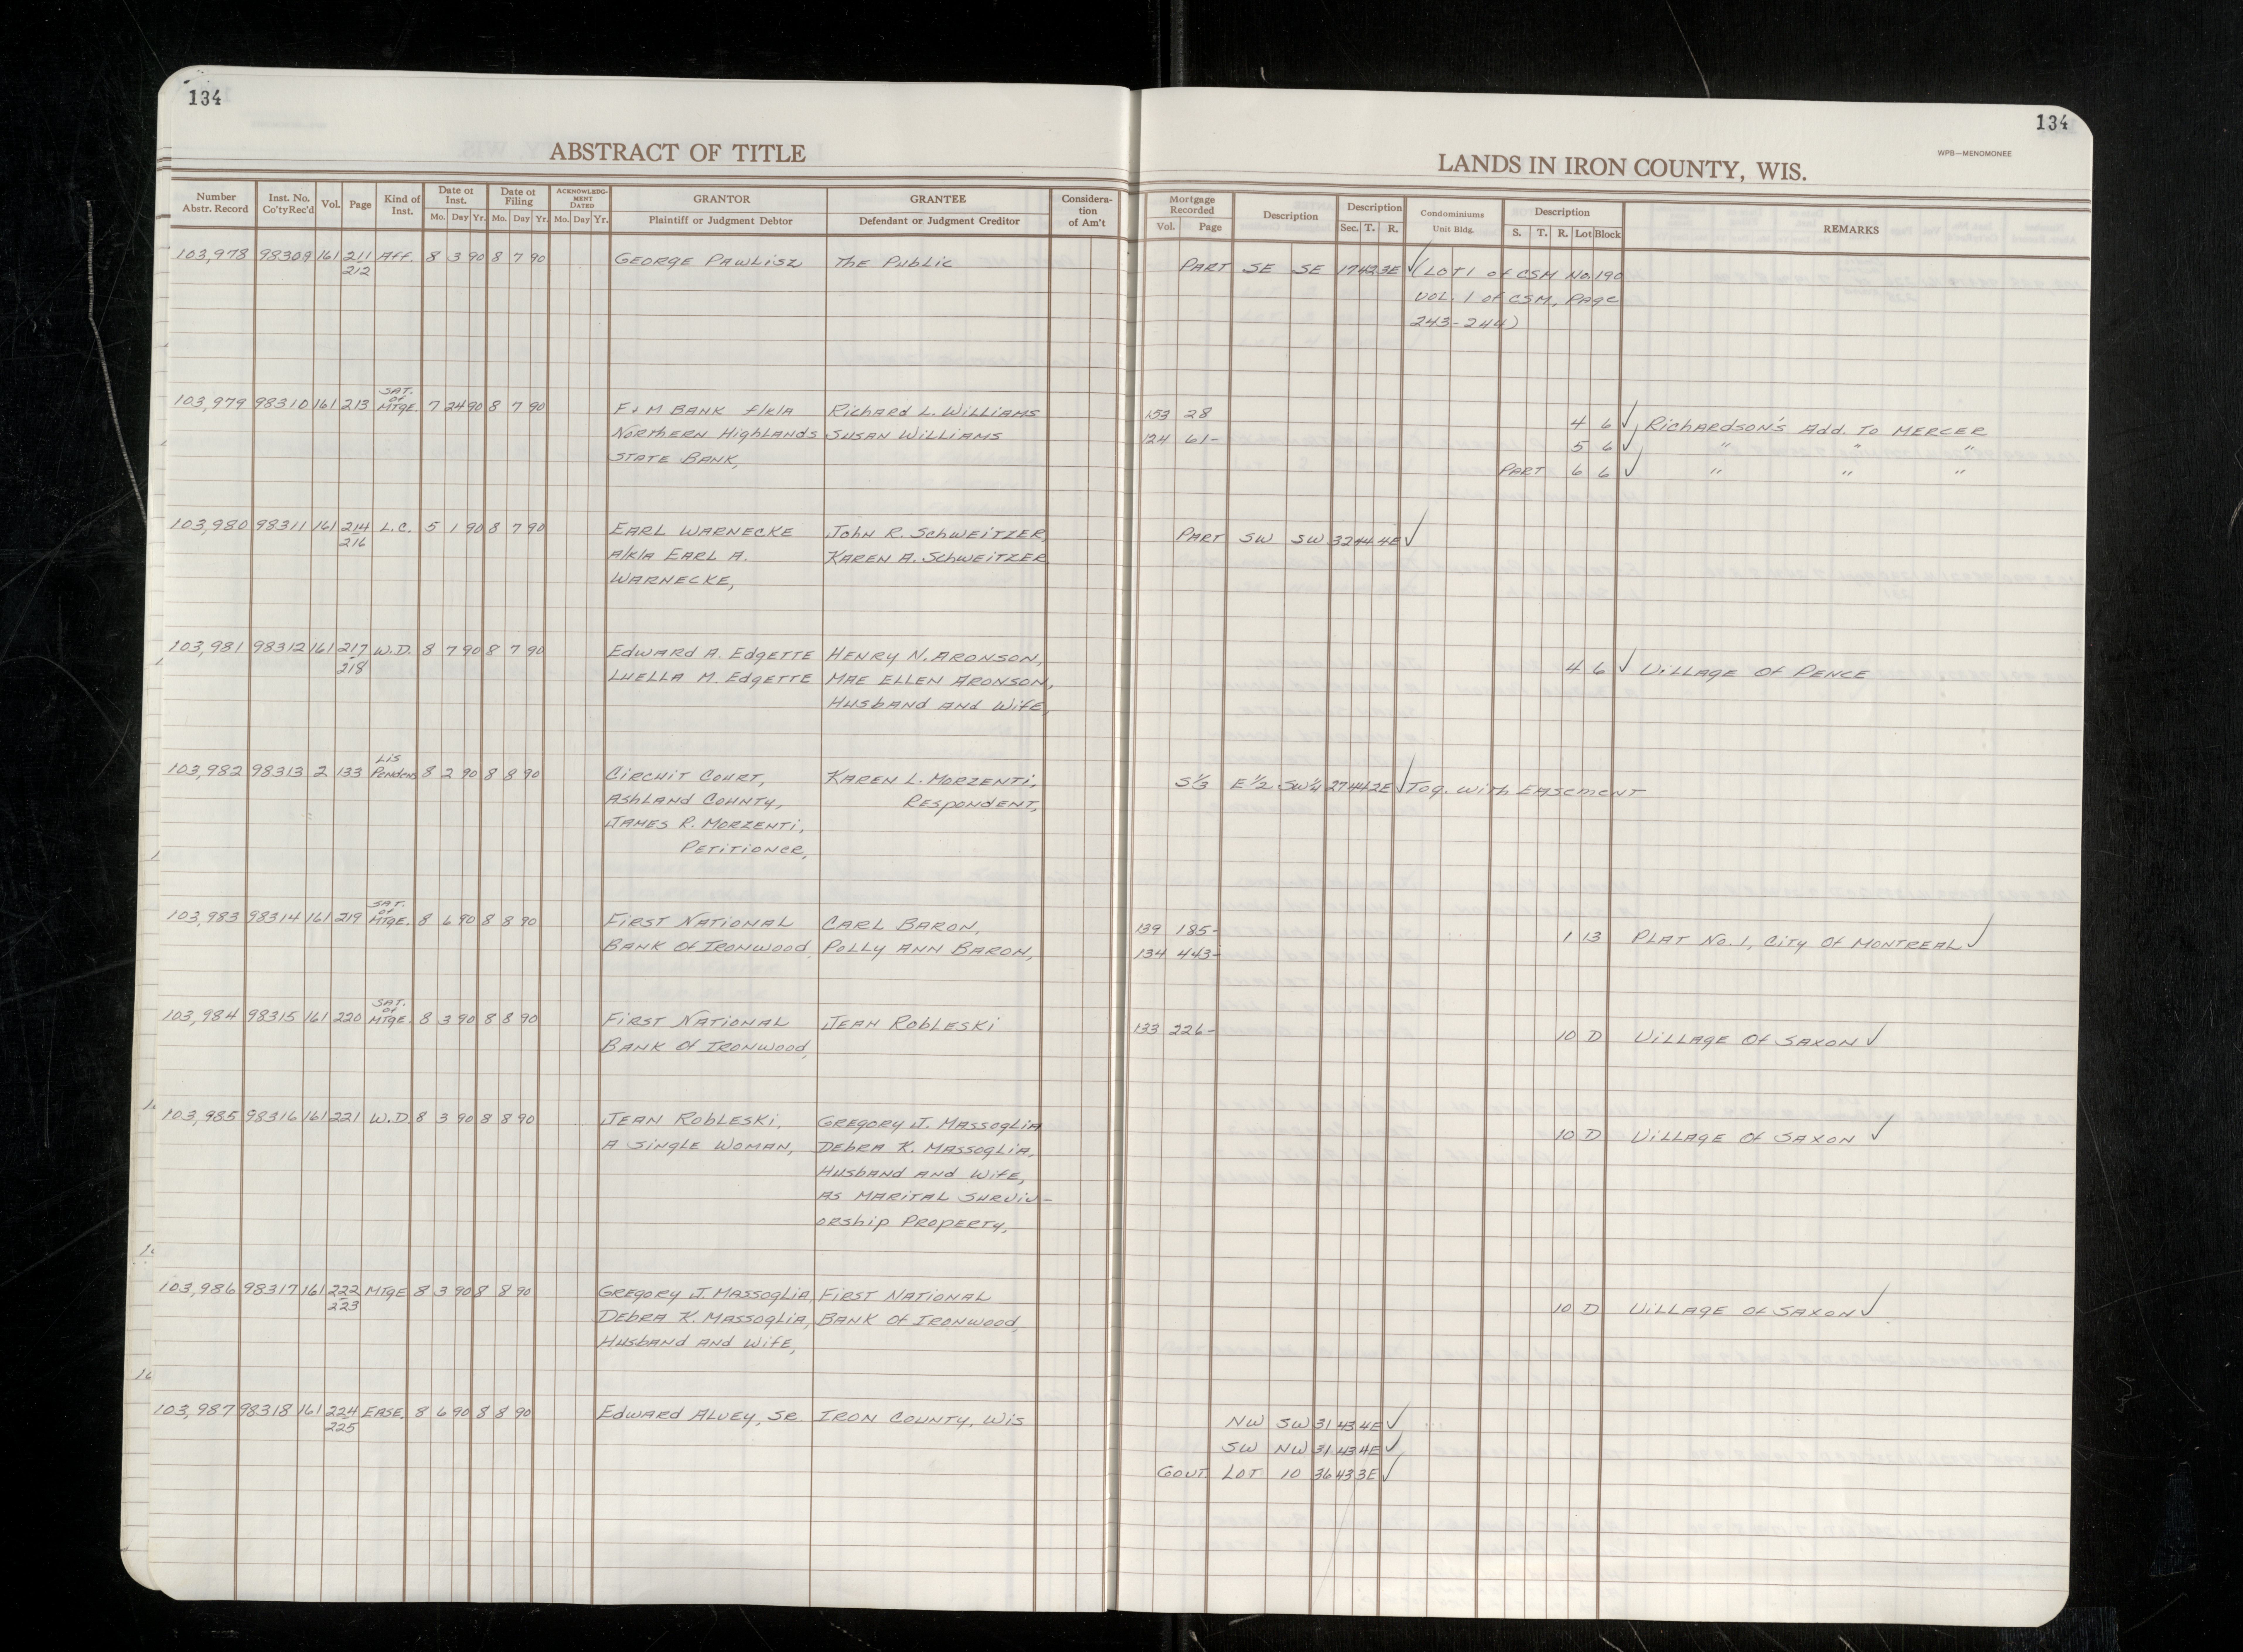 134
ABSTRACT OF TITLE
Number Abstr. Record | Inst. No. Co'ty Rec'd | Vol. | Page | Kind of Inst. | Date of Inst. Mo. Day Yr. | Date of Filing Mo. Day Yr. | ACKNOWLEDGMENT DATED Mo. Day Yr. | GRANTOR Plaintiff or Judgment Debtor | GRANTEE Defendant or Judgment Creditor | Consideration of Am't
103,978 98309 161 211 Aff. 8 3 90 8 7 90 GEORGE PAWLISZ The Public
212
SAT.
of
103,979 98310 161 213 MTGE. 7 24 90 8 7 90 F+M BANK f/k/a Richard L. Williams
Northern Highlands Susan Williams
State Bank,
103,980 98311 161 214 L.C. 5 1 90 8 7 90 Earl Warnecke John R. Schweitzer,
216 a/k/a Earl A. Karen A. Schweitzer
Warnecke,
103,981 98312 161 217 W.D. 8 7 90 8 7 90 Edward A. Edgette Henry N. Aronson,
218 Luella M. Edgette Mae Ellen Aronson,
Husband and Wife,
Lis
103,982 98313 2 133 Pendens 8 2 90 8 8 90 Circuit Court, Karen L. Morzenti,
Ashland County, Respondent,
James R. Morzenti,
Petitioner,
SAT.
of
103,983 98314 161 219 MTGE. 8 6 90 8 8 90 First National Carl Baron,
Bank of Ironwood, Polly Ann Baron,
SAT.
of
103,984 98315 161 220 MTGE. 8 3 90 8 8 90 First National Jean Robleski
Bank of Ironwood,
103,985 98316 161 221 W.D. 8 3 90 8 8 90 Jean Robleski, Gregory J. Massoglia
a single woman, Debra K. Massoglia,
Husband and Wife,
as marital surviv-
orship property,
103,986 98317 161 222 MTGE 8 3 90 8 8 90 Gregory J. Massoglia, First National
223 Debra K. Massoglia, Bank of Ironwood,
Husband and Wife,
103,987 98318 161 224 EASE. 8 6 90 8 8 90 Edward Alvey, Sr. Iron County, Wis
225
134
WPB—MENOMONEE
LANDS IN IRON COUNTY, WIS.
Mortgage Recorded Vol. Page | Description | Description Sec. T. R. | Condominiums Unit Bldg. | Description S. T. R. Lot Block | REMARKS
PART SE SE 17 42 3E ✓ (LOT 1 of CSM No. 190
Vol. 1 of CSM, Page
243-244)
153 28 4 6 ✓ Richardson's Add. To Mercer
124 61- 5 6 ✓ " " "
PART 6 6 ✓ " " "
PART SW SW 32 44 4E ✓
4 6 ✓ Village of Pence
S⅓ E½ SW¼ 27 44 2E ✓ Tog. with Easement
139 185- 1 13 Plat No. 1, City of Montreal ✓
134 443-
133 226- 10 D Village of Saxon ✓
10 D Village of Saxon ✓
10 D Village of Saxon ✓
NW SW 31 43 4E ✓
SW NW 31 43 4E ✓
Govt. Lot 10 36 43 3E ✓